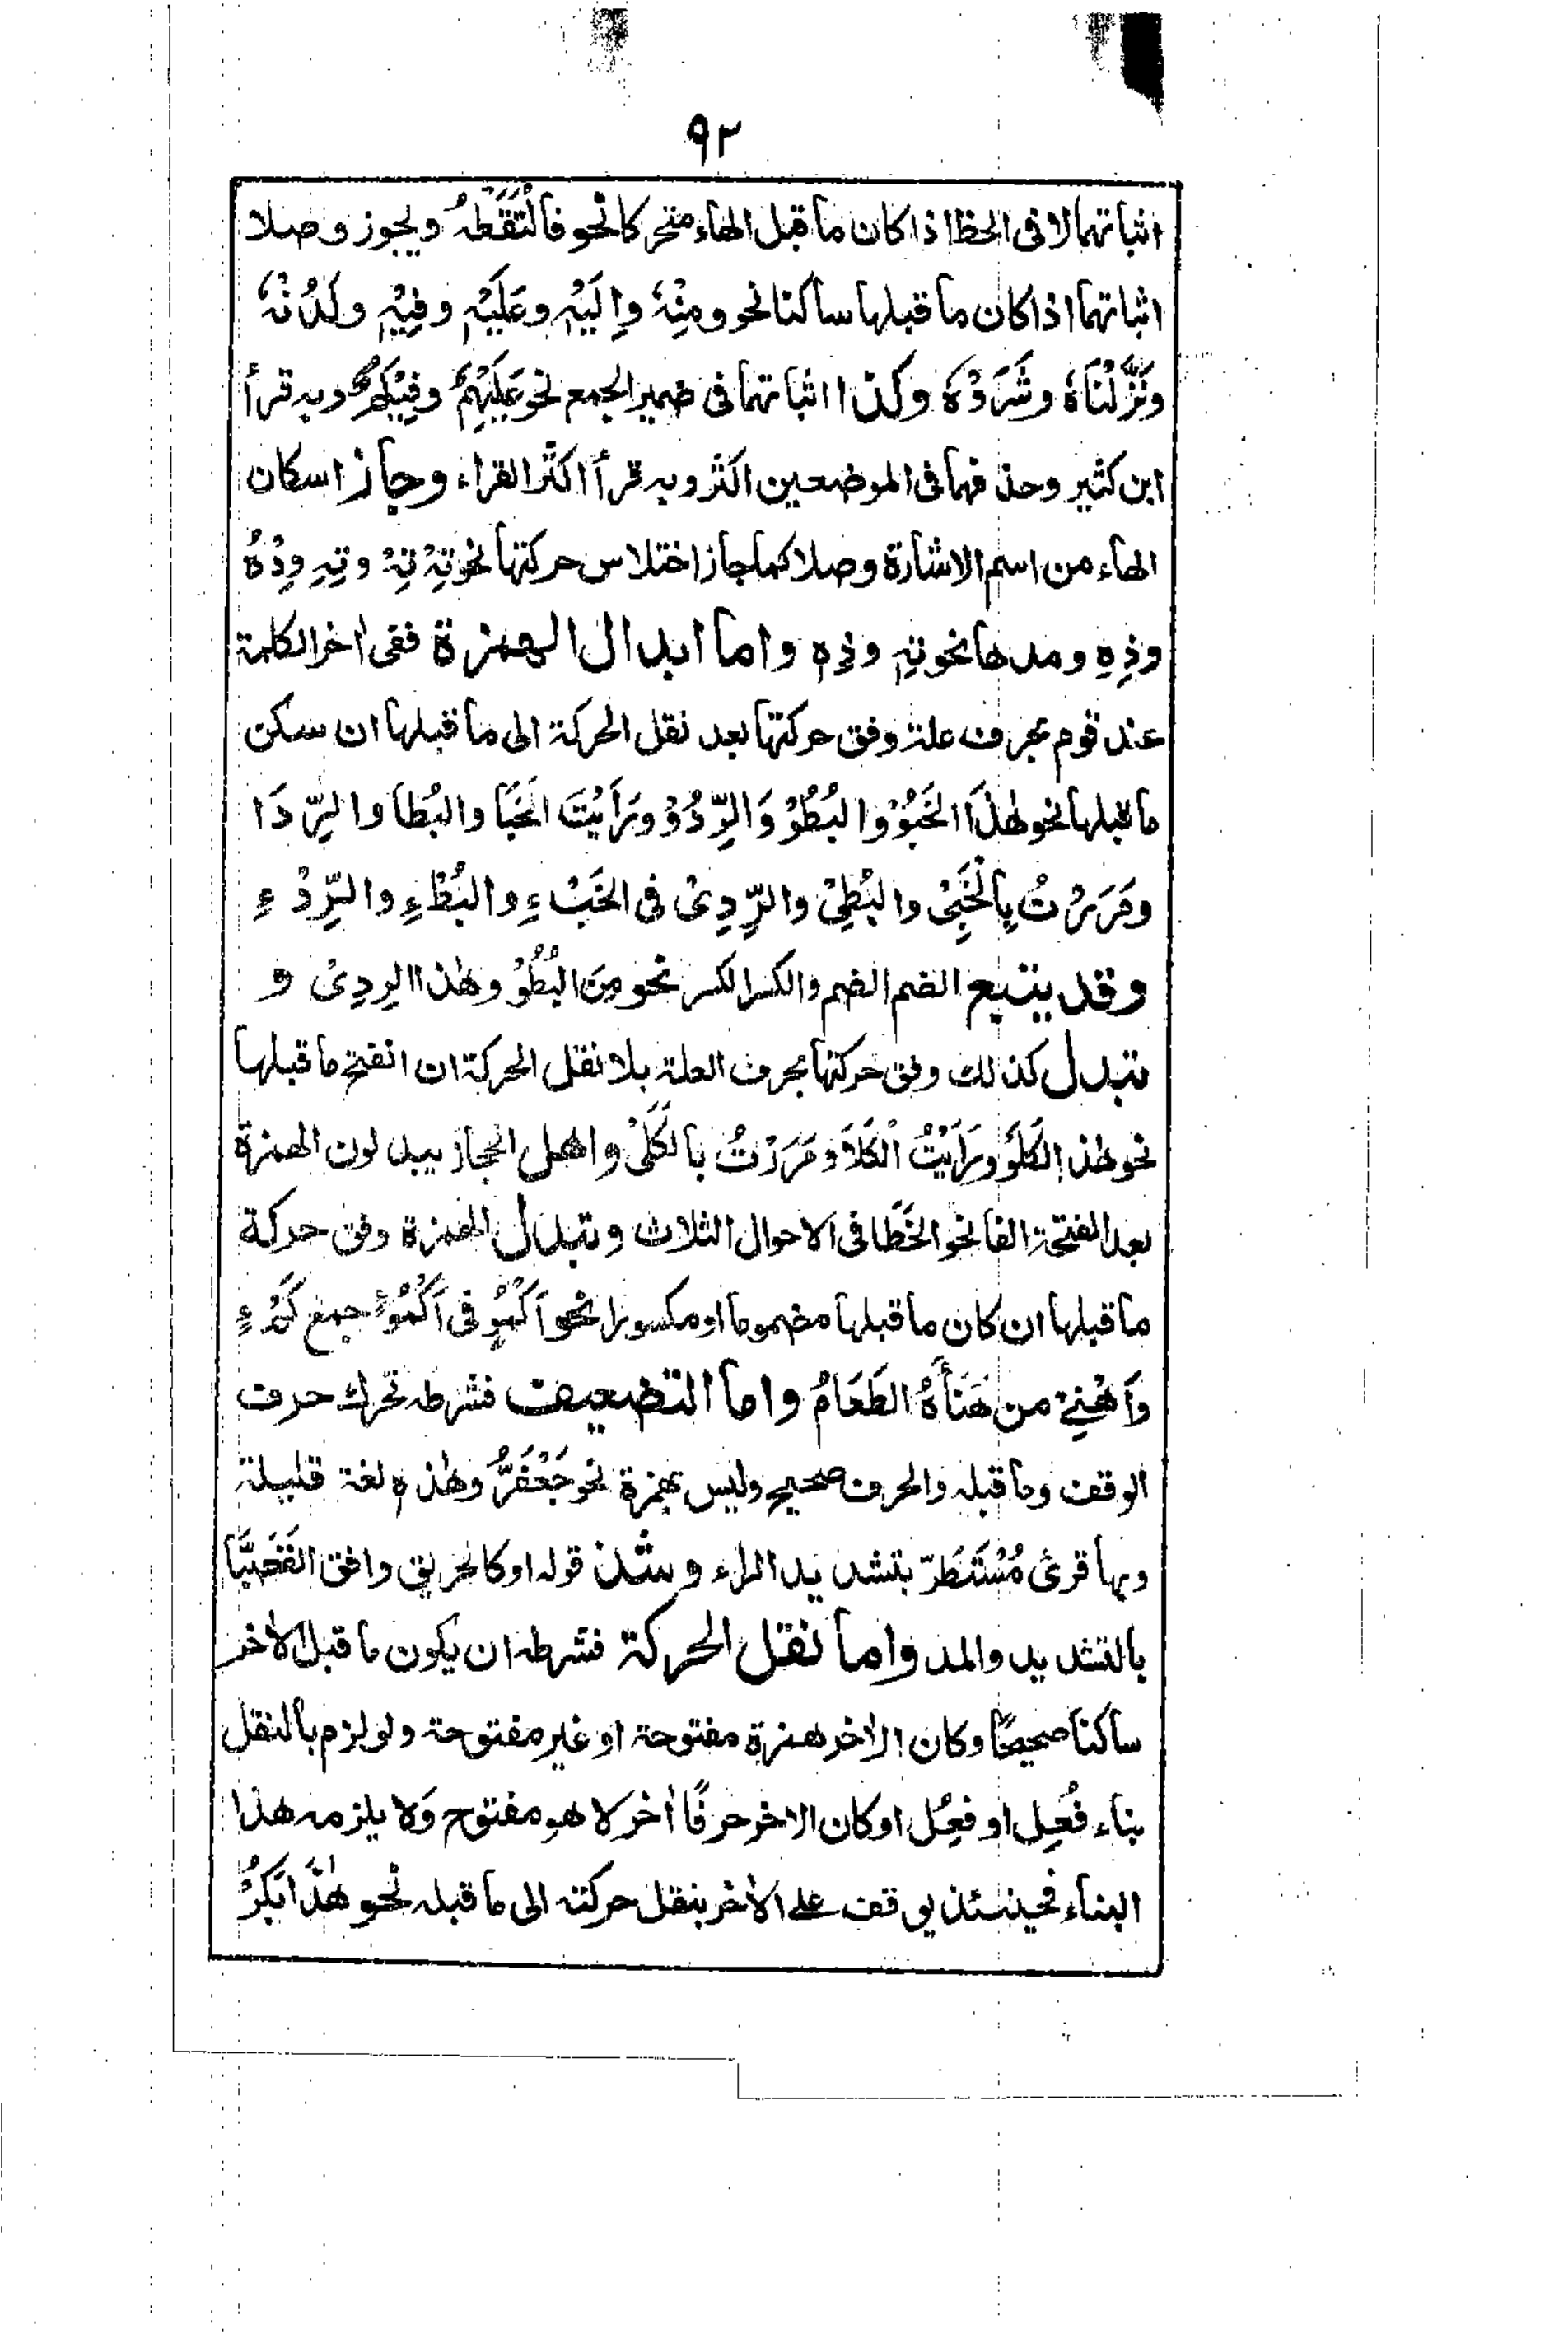 ۹۲
اثباتهما لا فى الخط اذا كان ما قبل الهاء متحركا نحو فَالْتَقَطَهُ ويجوز وصلا
اثباتهما اذا كان ما قبلها ساكنا نحو ومِنْهٗ وإلَيْهٖ وعَلَيْهٖ وفِيْهٖ ولَدُنْهٗ
ونَزَّلْنَاهٗ وشَرَوْهٗ وكذا اثباتهما فى ضمير الجمع نحو عَلَيْهِمْ وفِيْكُمْ وبه قرأ
ابن كثير وحذفهما فى الموضعين اكثر وبه قرأ اكثر القراء وجاز اسكان
الهاء من اسم الاشارة وصلا كما جاز اختلاس حركتها نحو تِهْ تِهْ وتِهِ وذِهْ
وذِهِ ومدها نحو تِهٖ وذِهٖ واما ابدال الهمزة ففى اٰخر الكلمة
عند قوم بحرف علة وفق حركتها بعد نقل الحركة الى ما قبلها ان سكن
ما قبلها نحو هٰذَا الخَبُوْ والبُطُوْ وَالرِّدُوْ ورَأَيْتَ الخَبَا والبُطَا والرِّدَا
ومَرَرْتُ بِالْخَبِىْ والبُطِىْ والرِّدِىْ فى الخَبْءِ والبُطْءِ والرِّدْءِ
وقد يتبع الضم الضم والكسر الكسر نحو مِنَ البُطُوْ وهٰذا الرِدِىْ و
تبدل كذلك وفق حركتها بحرف العلة بلا نقل الحركة ان انفتح ما قبلها
نحو هٰذا الكَلَوْ ورَأَيْتُ الْكَلَا ومَرَرْتُ بالكَلَىْ واهل الحجاز يبدلون الهمزة
بعد الفتحة الفا نحو الخَطَا فى الاحوال الثلاث وتبدل الهمزة وفق حركة
ما قبلها ان كان ما قبلها مضموما او مكسورا نحو اَكْمُوْ فى اَكْمُؤٍ جمع كَمْءٍ
وَأهْنِىْ من هَنَأَهُ الطَعَامُ واما التضعيف فشرطه تحرك حرف
الوقف وما قبله والحرف صحيح وليس بهمزة نحو جَعْفَرّْ وهٰذه لغة قليلة
وبها قرئ مُسْتَطَرّ بتشديد الراء وشذ قوله او كالحريق وافق القَصَبَّا
بالتشديد والمد واما نقل الحركة فشرطه ان يكون ما قبل الاٰخر
ساكنا صحيحًا وكان الاٰخر همزة مفتوحة او غير مفتوحة ولو لزم بالنقل
بناء فُعِل او فِعُل او كان الاخر حرفًا اٰخر لا هو مفتوح وَلا يلزمه هذا
البناء فحينئذ يوقف على الاٰخر بنقل حركته الى ما قبله نحو هٰذَا بَكُرْ